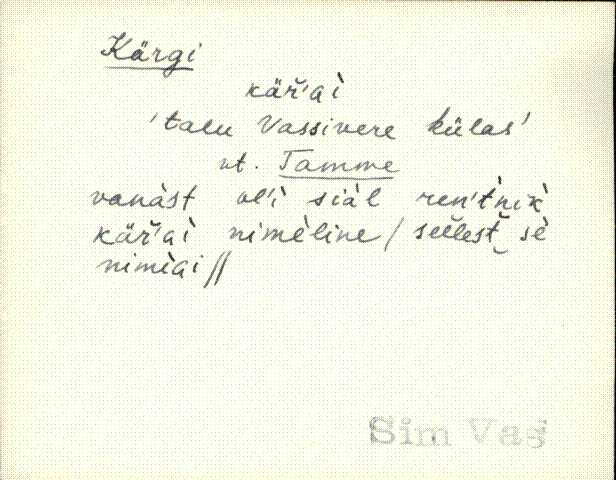 Kärgi
kär̆'ɢì
'talu Vassivere külas'
vt. Tamme
vanàst ol'ì siàl ren't̀nik̀
kär̆'ɢì nimèline / sel̆lest̆‿sè
nimìɢi //
Sim Vas